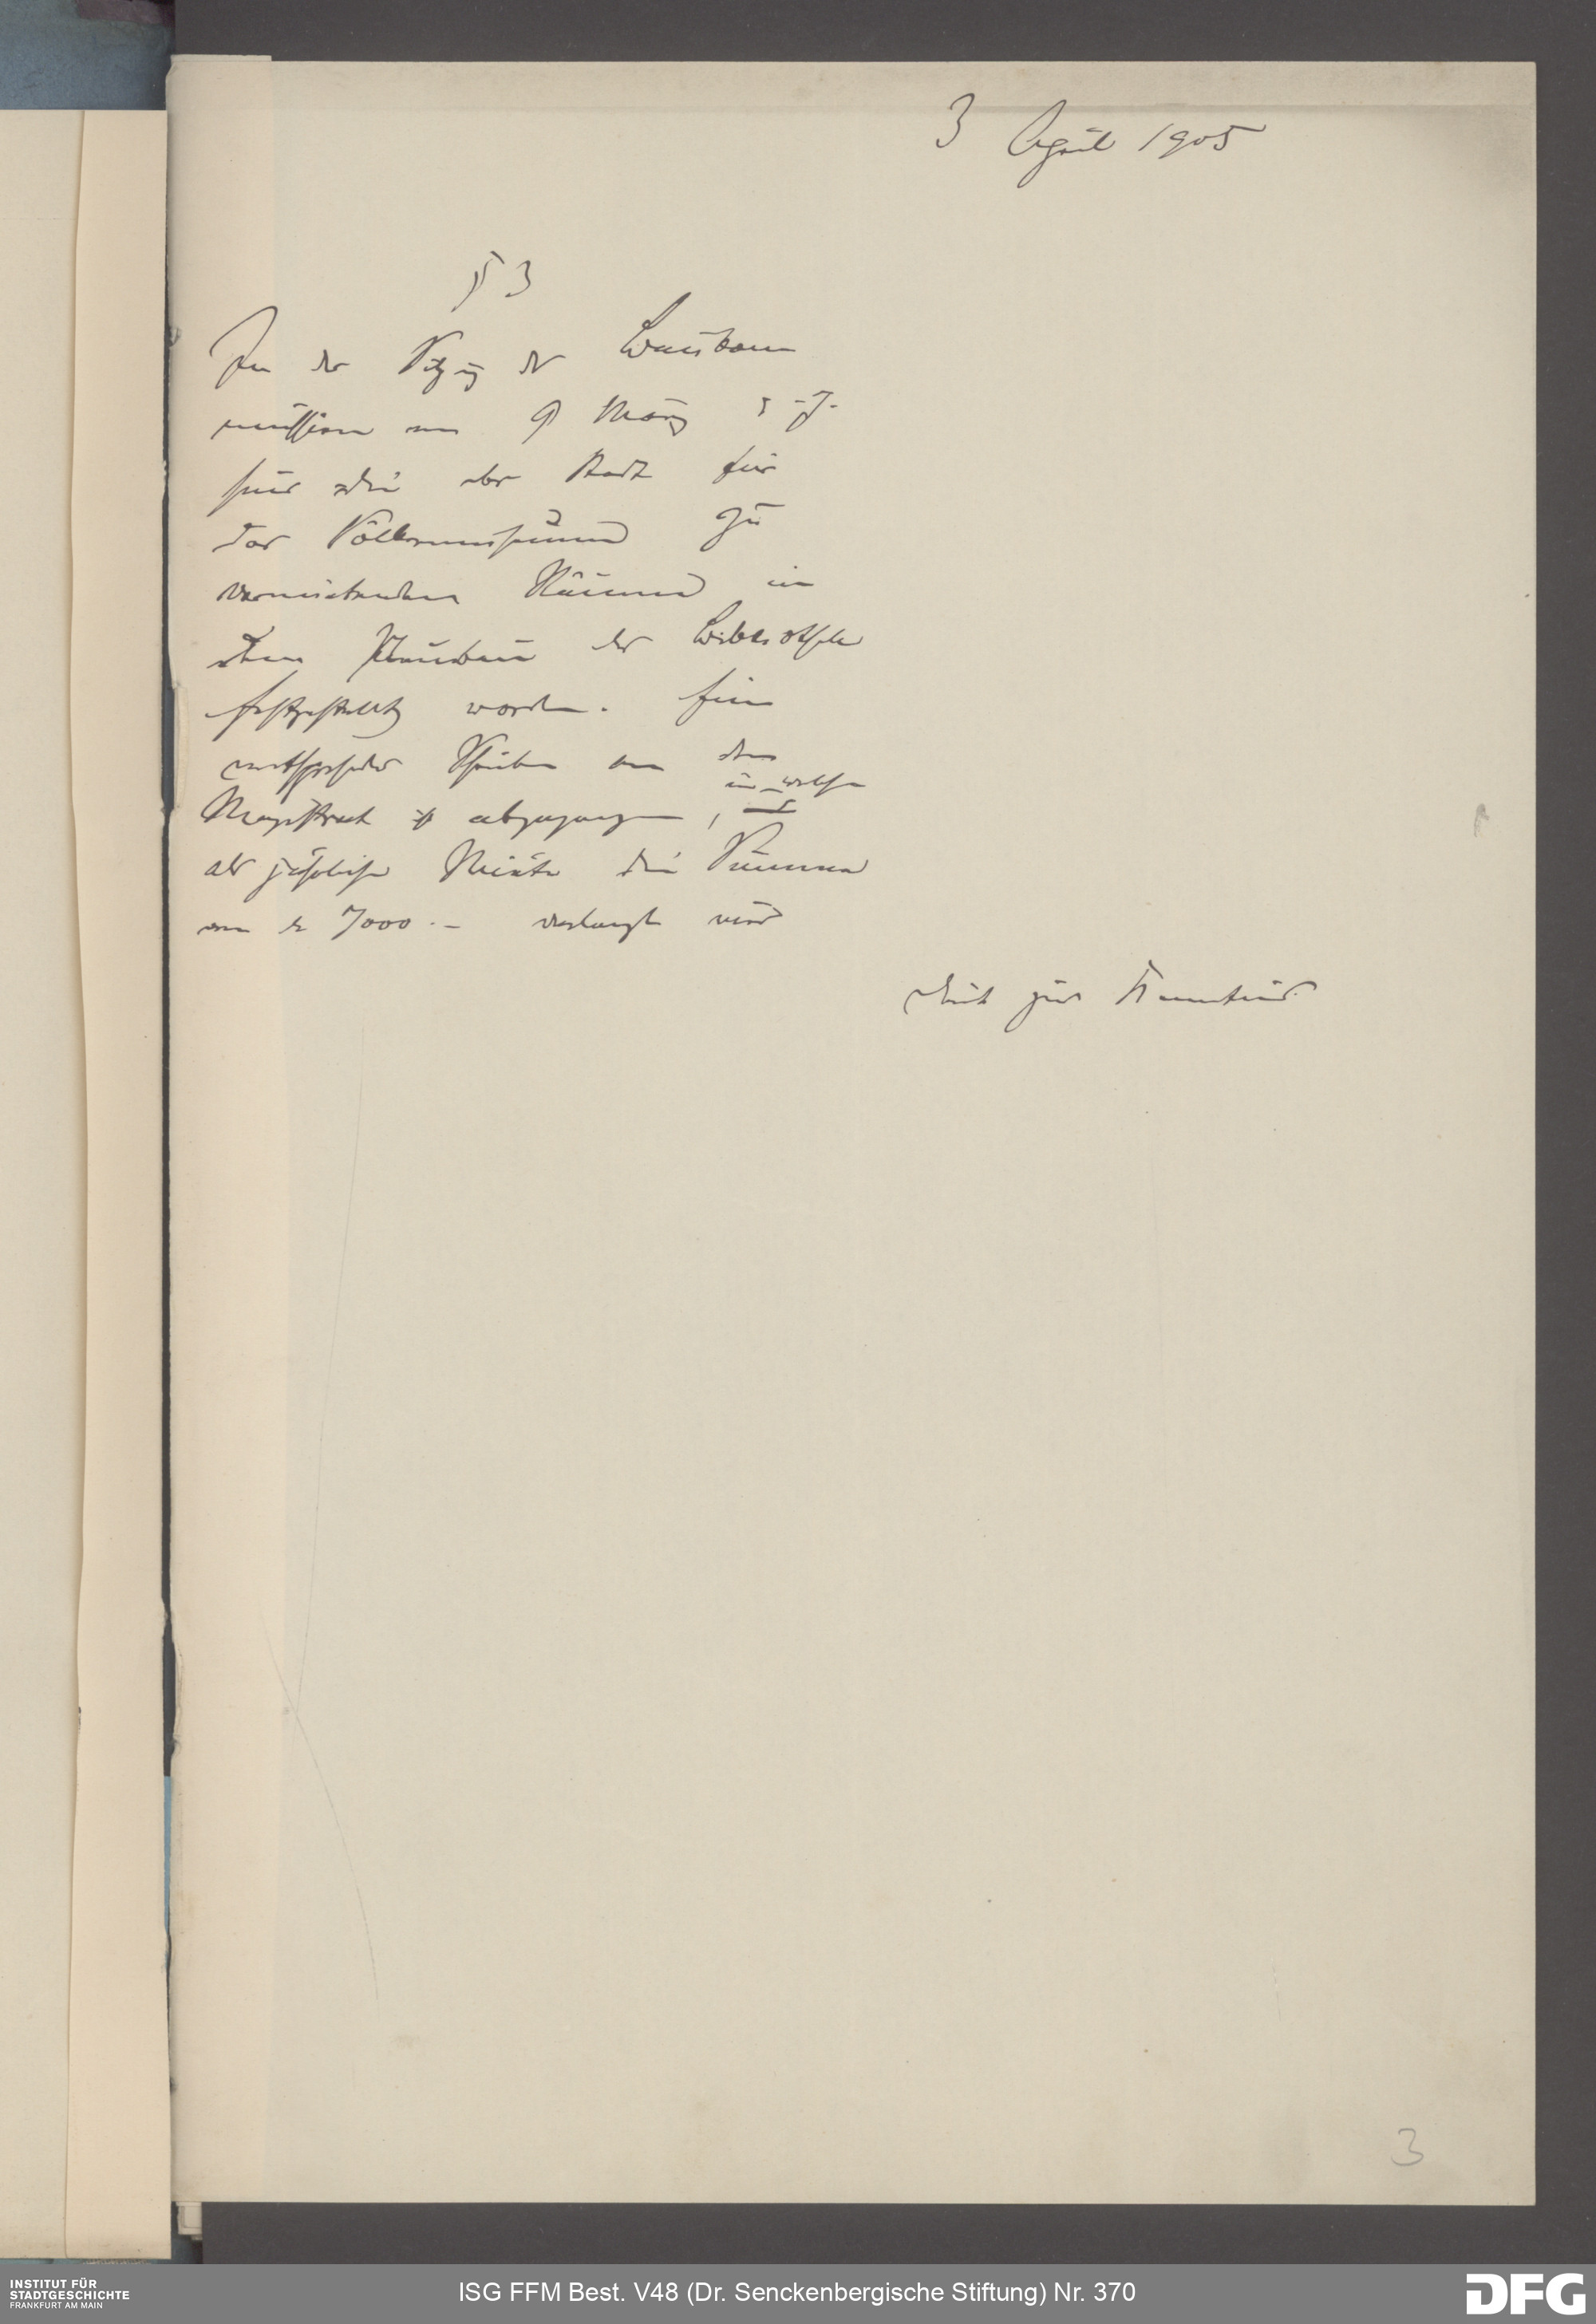 3 April 1905
§ 3
In der Sitzung der Baukom
mission am 9 März d. J.
sind die der Stadt für
das Völkermuseum zu
vermietenden Räume in
dem Neubau der Bibliothek
festgestellt worden. Ein
entsprechendes Schreiben an den
in welchem
Magistrat ist abgegangen,
als jährliche Miete die Summe
von M 7000.- verlangt wird
dient zur Kenntnis.
3
INSTITUT FÜR
STADTGESCHICHTE
FRANKFURT AM MAIN
ISG FFM Best. V48 (Dr. Senckenbergische Stiftung) Nr. 370
DFG